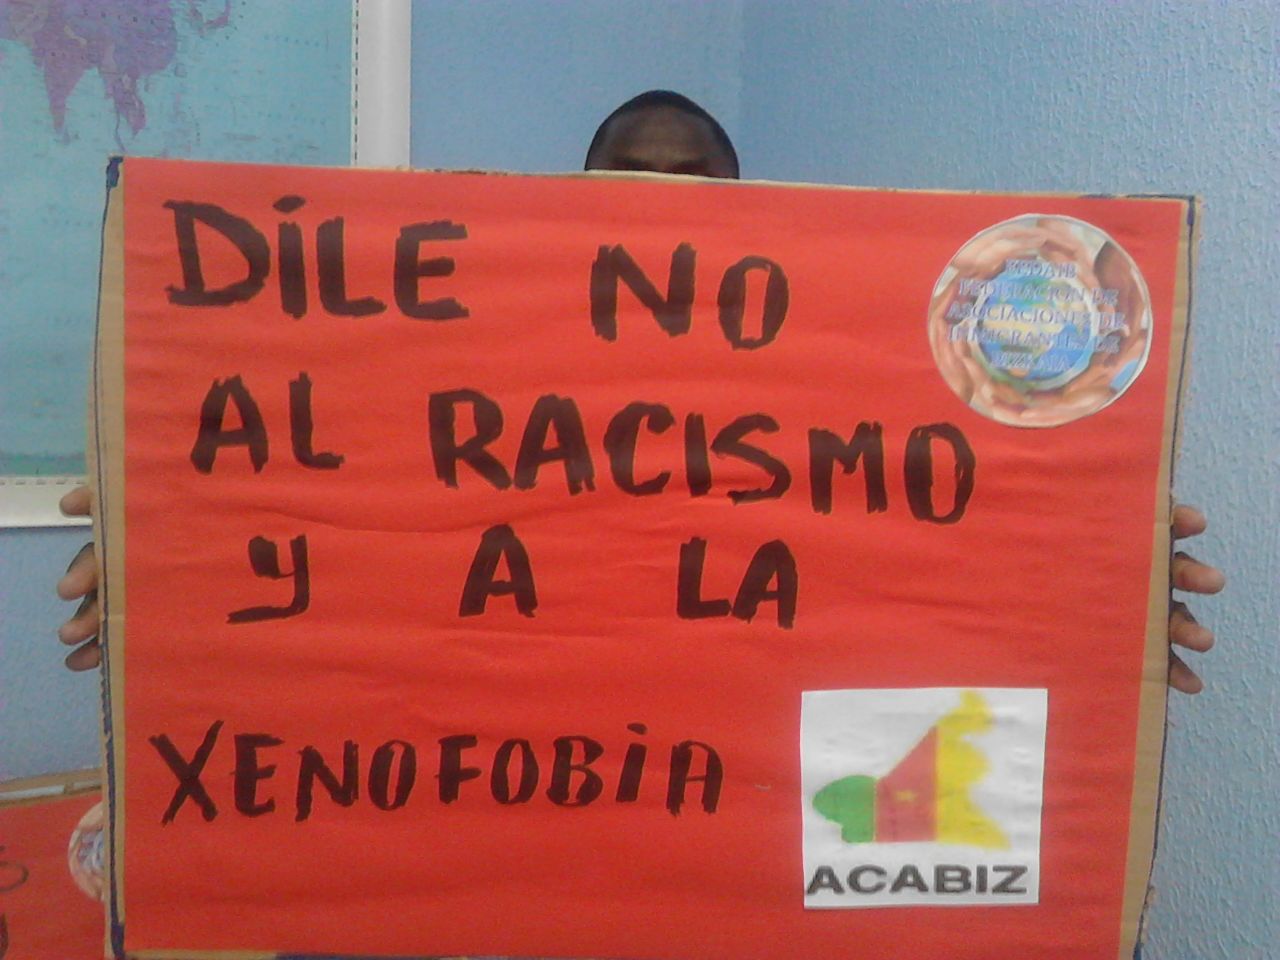 DILE NO
AL RACISMO
Y A LA
XENOFOBIA
FEDAIB
FEDERACION DE
ASOCIACIONES DE
INMIGRANTES DE
BIZKAIA
ACABIZ